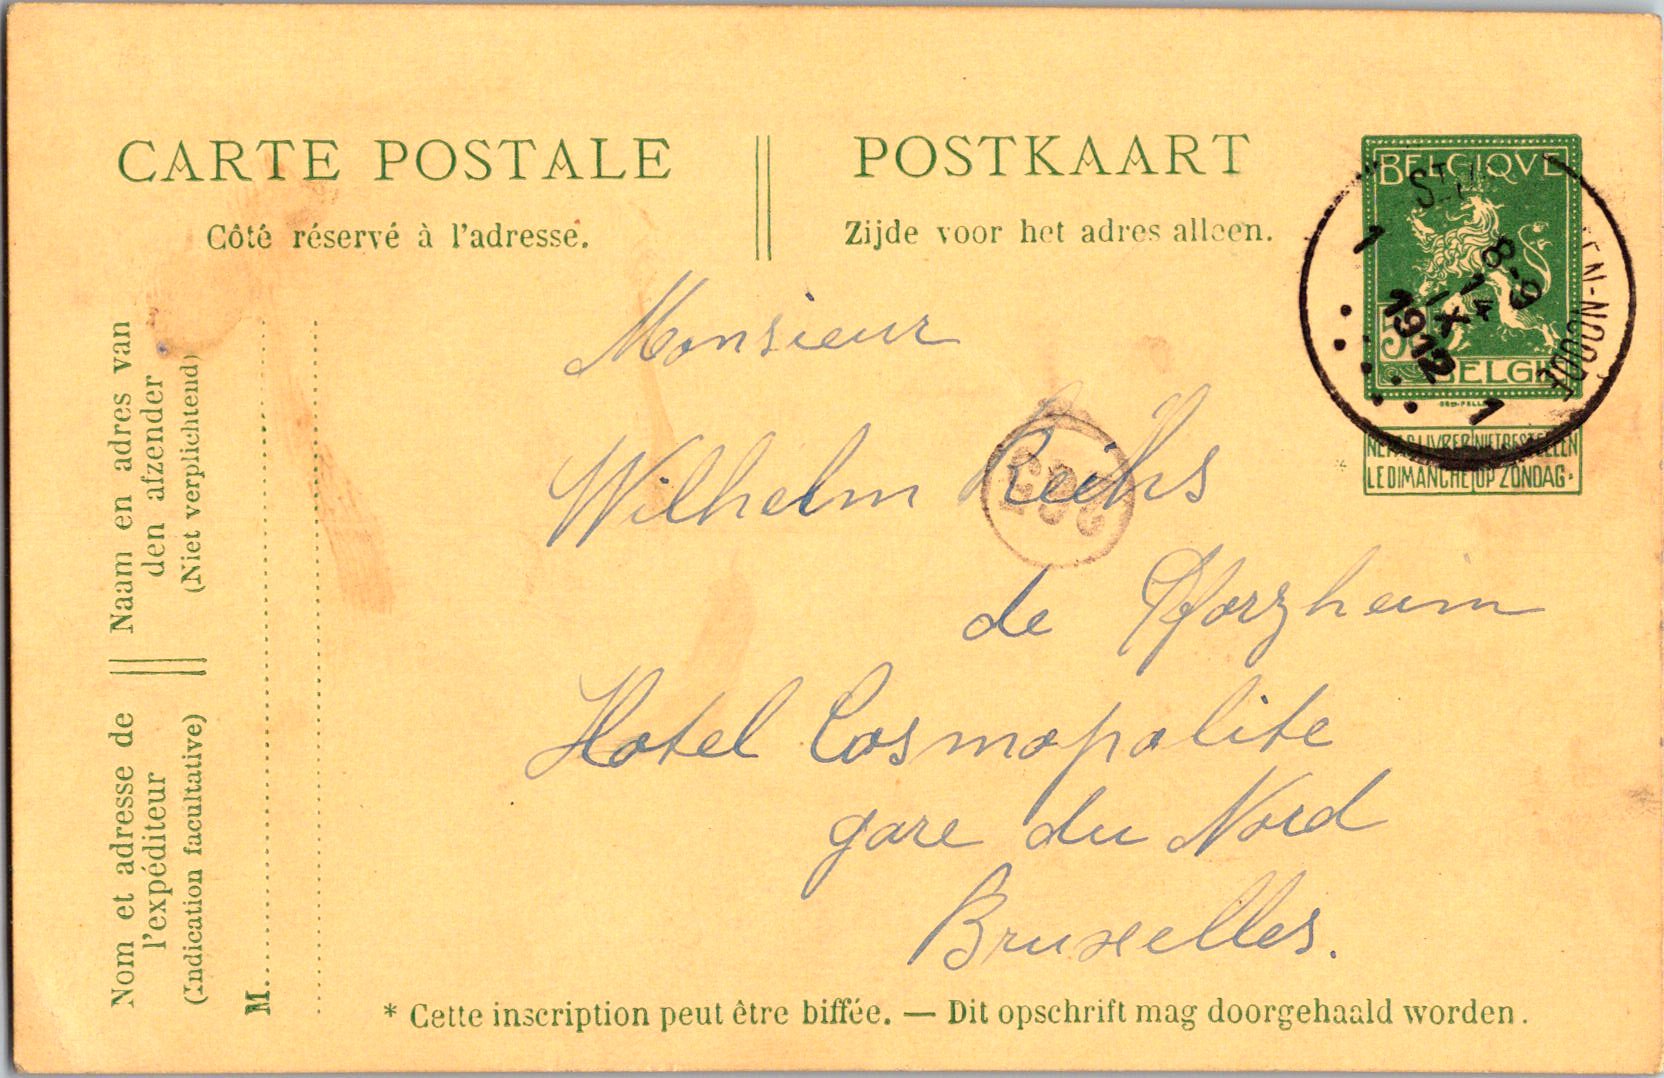 CARTE POSTALE
Côté réservé à l'adresse.
POSTKAART
Zijde voor het adres alleen.
BELGIQVE
5
BELGI
8-9
14
IX
1912
1
1
EN-NOODE
NE PAS LIVRER NIET BESTELLEN
LE DIMANCHE OP ZONDAG
*
Naam en adres van
den afzender
(Niet verplichtend)
Nom et adresse de
l'expéditeur
(Indication facultative)
M.
Monsieur
Wilhelm
de Pforzheim
Hotel Cosmopolite
gare du Nord
Bruxelles.
* Cette inscription peut être biffée. — Dit opschrift mag doorgehaald worden.